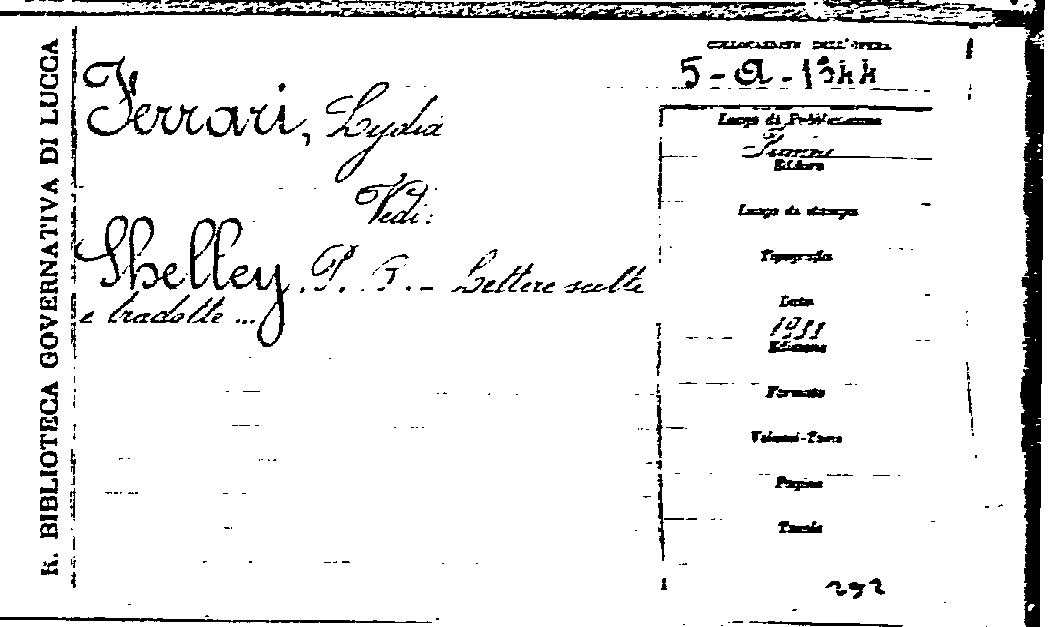 R. BIBLIOTECA GOVERNATIVA DI LUCCA
COLLOCAZIONE DELL'OPERA
5-A-1344
Ferrari, Lydia
Vedi:
Shelley, P. . - Lettere scelte
e tradotte ...
Luogo di Pubblicazione
Editore
Luogo di stampa
Tipografia
Data
1931
Edizione
Formato
Volumi-Tomo
Pagine
Tavole
292